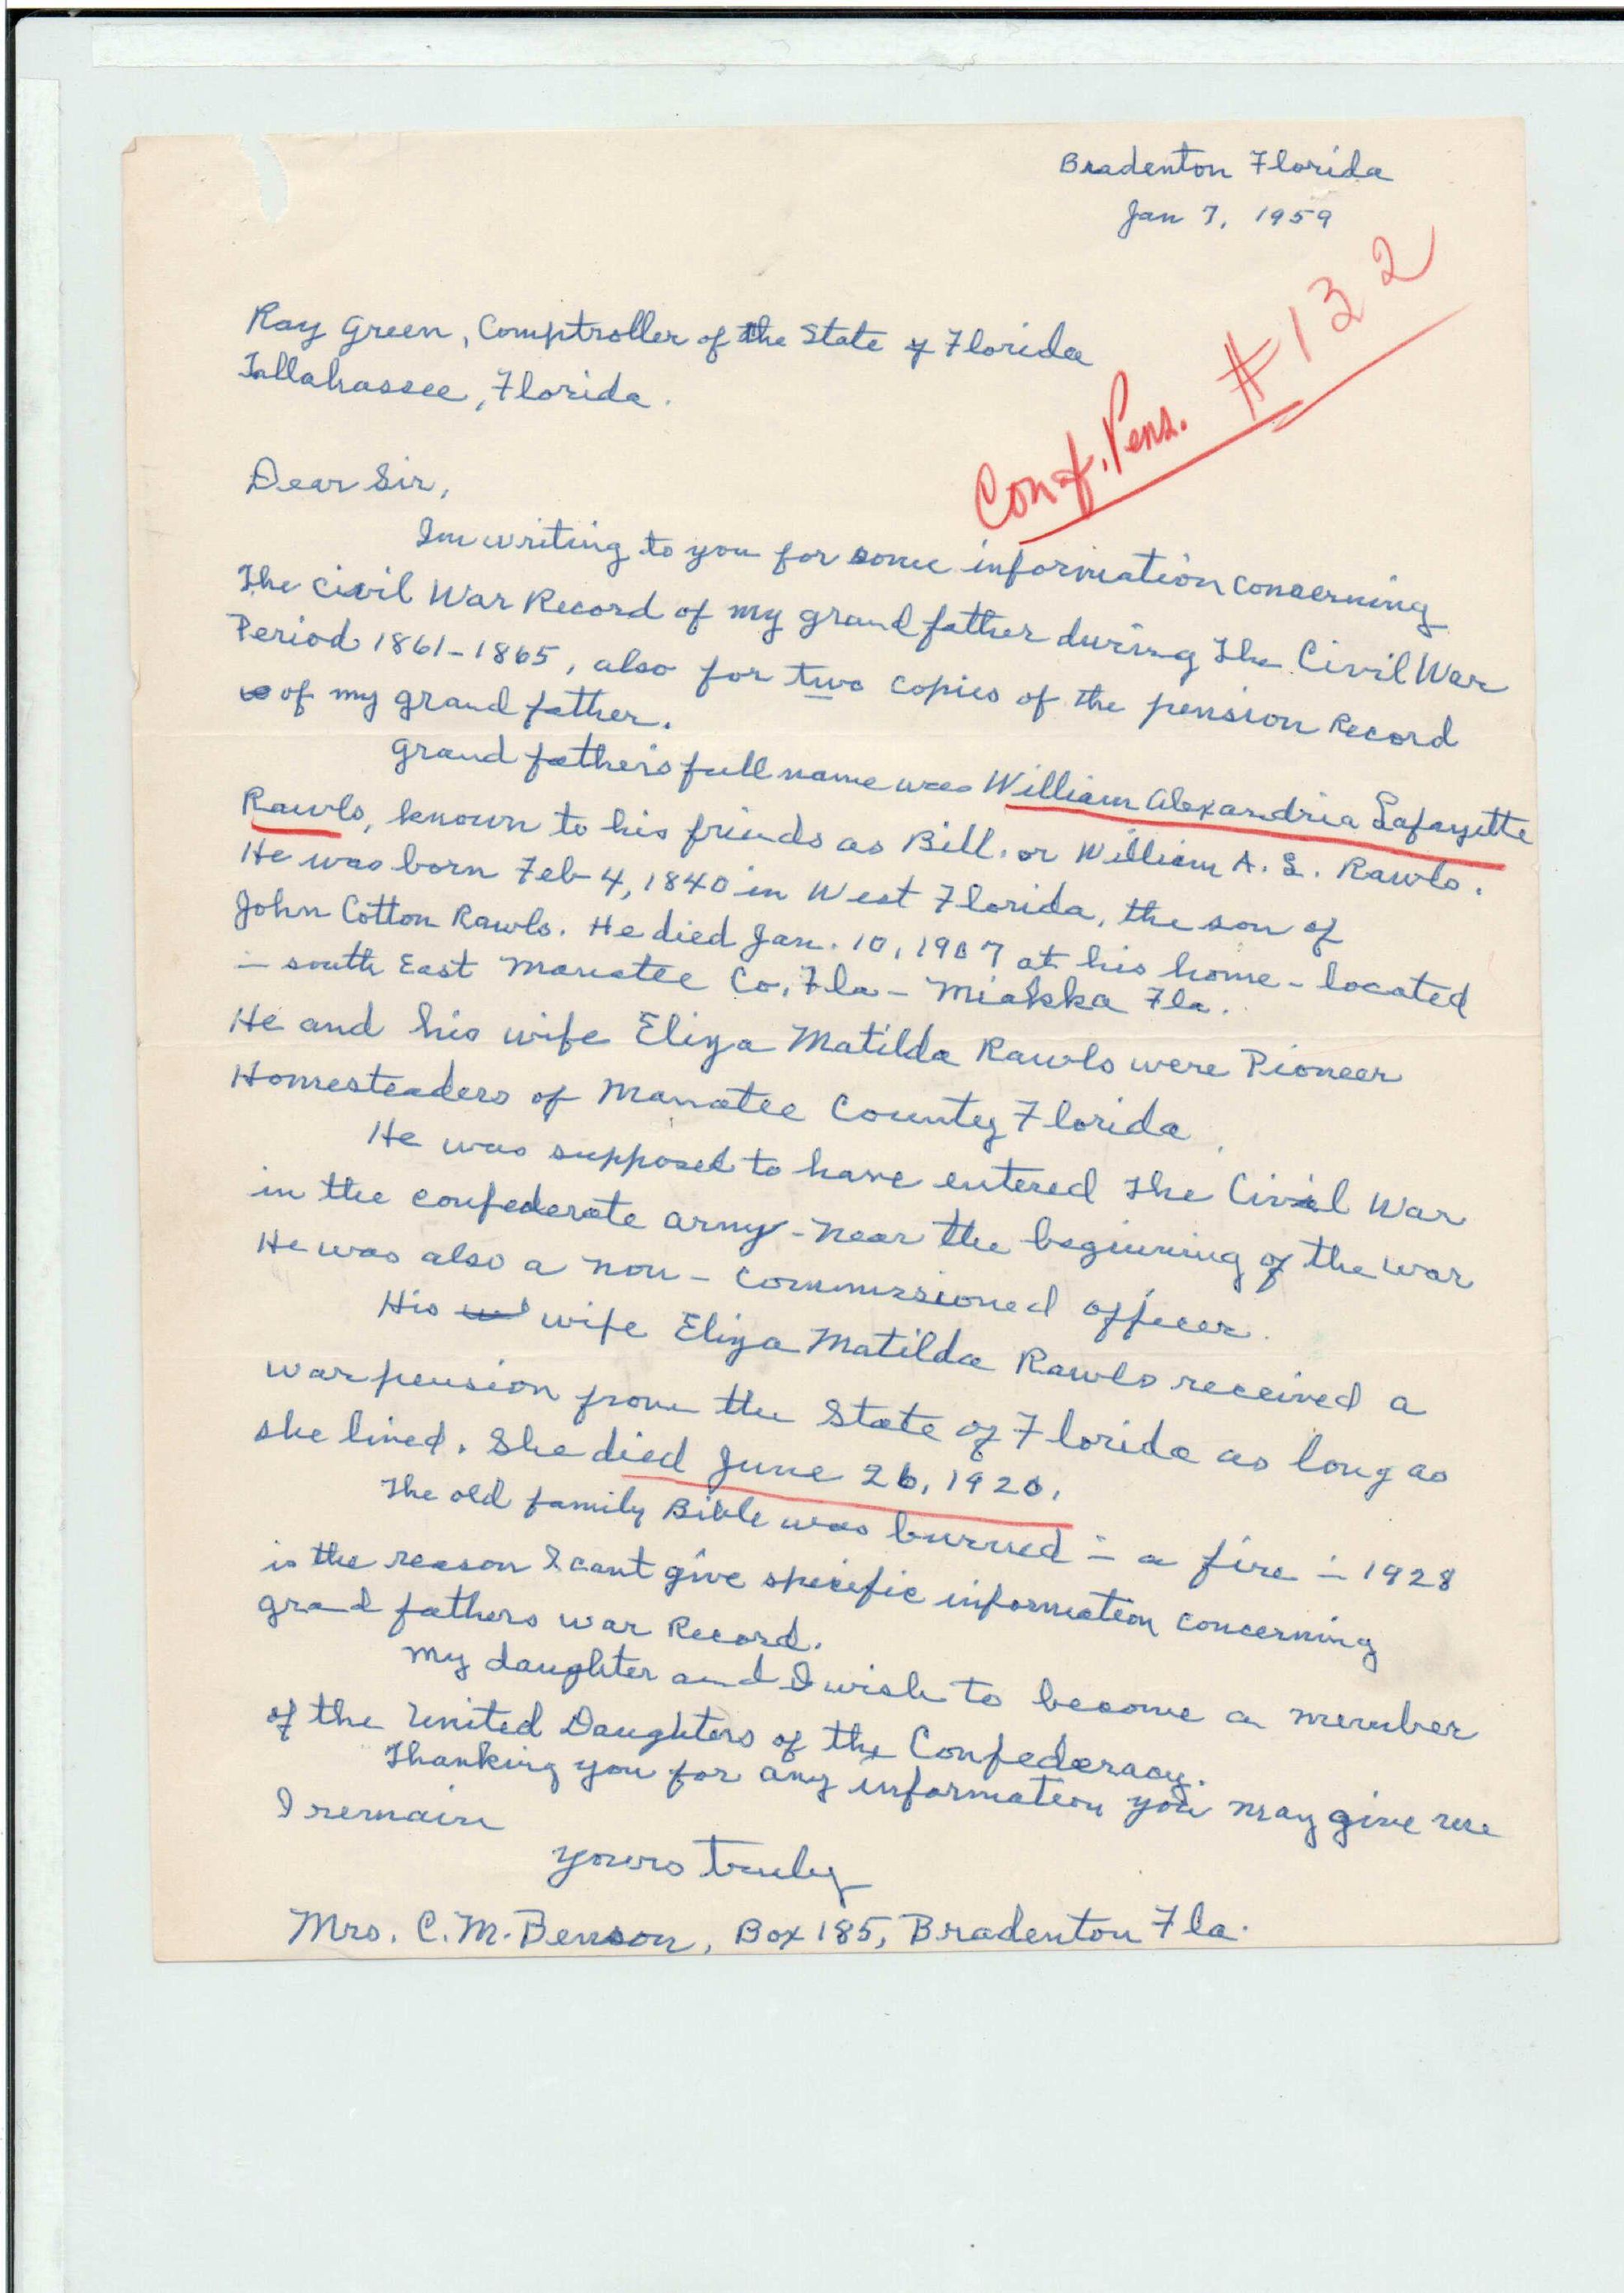 Bradenton Florida
Jan 7, 1959
Ray Green, Comptroller of the State of Florida
Tallahassee, Florida.
Conf. Pens. #132
Dear Sir,
Im writing to you for some information concerning
The Civil War Record of my grandfather during The Civil War
Period 1861-1865, also for two copies of the pension Record
of my grandfather.
Grandfathers full name was William Alexandria Lafayette
Rawls, known to his friends as Bill. or William A. L. Rawls.
He was born Feb 4, 1840 in West Florida, the son of
John Cotton Rawls. He died Jan. 10, 1907 at his home - located
in south East Manatee Co. Fla - Miakka Fla.
He and his wife Eliza Matilda Rawls were Pioneer
Homesteaders of Manatee County Florida.
He was supposed to have entered The Civil War
in the confederate army - near the beginning of the war
He was also a non-commissioned officer.
His wife Eliza Matilda Rawls received a
war pension from the State of Florida as long as
she lived. She died June 26, 1920.
The old family Bible was burned in a fire in 1928
is the reason I cant give specific information concerning
grandfathers war Record.
My daughter and I wish to become a member
of the United Daughters of the Confederacy.
Thanking you for any information you may give me
I remain
yours truly
Mrs. C. M. Benson, Box 185, Bradenton Fla.